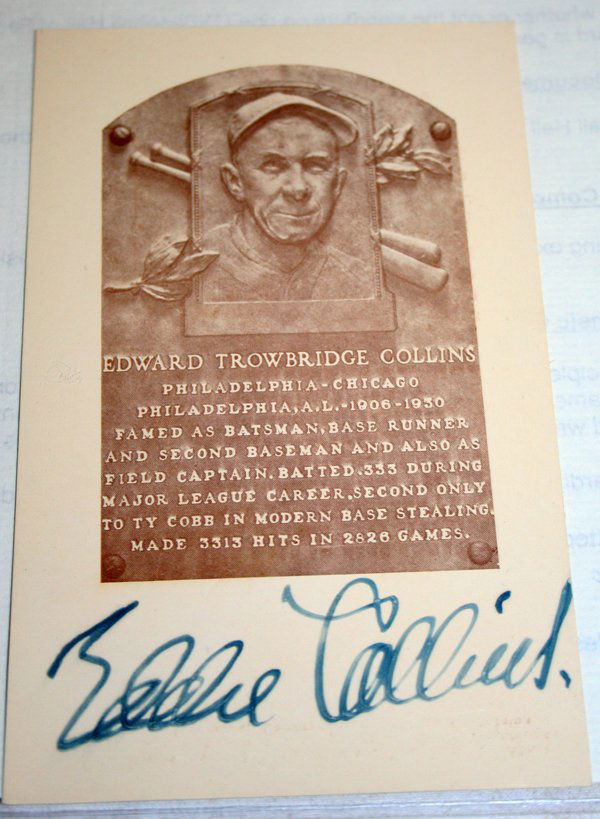 EDWARD TROWBRIDGE COLLINS
PHILADELPHIA-CHICAGO
PHILADELPHIA, A.L.-1906-1930
FAMED AS BATSMAN, BASE RUNNER
AND SECOND BASEMAN AND ALSO AS
FIELD CAPTAIN. BATTED .333 DURING
MAJOR LEAGUE CAREER, SECOND ONLY
TO TY COBB IN MODERN BASE STEALING.
MADE 3313 HITS IN 2826 GAMES.
Eddie Collins.